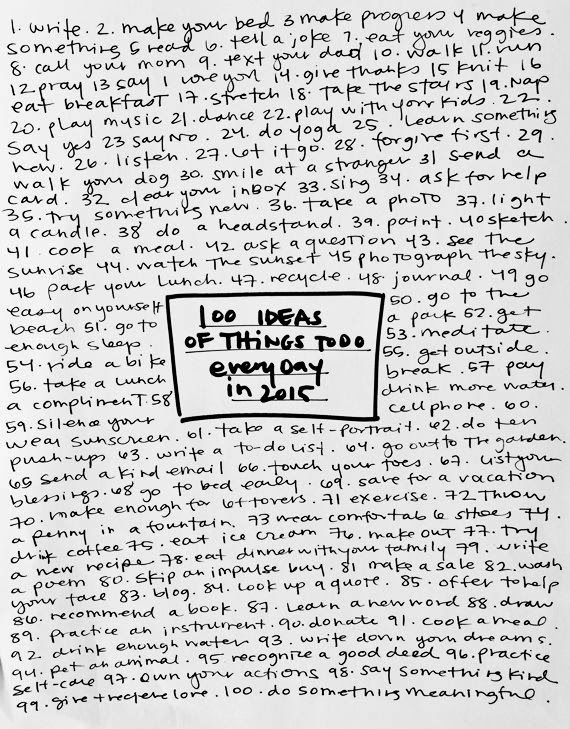 1. write. 2. make your bed 3 make progress 4 make
something 5 read 6. tell a joke 7. eat your veggies.
8. call your mom 9. text your dad 10. walk 11. run
12 pray 13 say I love you 14. give thanks 15 knit 16
eat breakfast 17. stretch 18. take the stairs 19. nap
20. play music 21. dance 22. play with your kids. 22.
say yes 23 say no. 24. do yoga 25. learn something
new. 26. listen. 27. let it go. 28. forgive first. 29.
walk your dog 30. smile at a stranger 31 send a
card. 32 clear your inbox 33. sing 34. ask for help
35. try something new. 36. take a photo 37. light
a candle. 38 do a headstand. 39. paint. 40 sketch.
41. cook a meal. 42 ask a question 43. see the
sunrise 44. watch the sunset 45 photograph the sky.
46 pack your lunch. 47. recycle. 48. journal. 49 go
easy on yourself 50. go to the
beach 51. go to a park 52. get
enough sleep. 53. meditate.
54. ride a bike 55. get outside.
56. take a lunch break. 57 pay
a compliment. 58 drink more water.
59. silence your cellphone. 60.
100 IDEAS
OF THINGS TO DO
everyday
in 2015
wear sunscreen. 61. take a self-portrait. 62. do ten
push-ups 63. write a to-do list. 64. go out to the garden.
65 send a kind email 66. touch your toes. 67. list your
blessings. 68 go to bed early. 69. save for a vacation
70. make enough for leftovers. 71 exercise. 72 throw
a penny in a fountain. 73 wear comfortable shoes 74.
drink coffee 75. eat ice cream 76. make out 77. try
a new recipe 78. eat dinner with your family 79. write
a poem 80. skip an impulse buy. 81 make a sale 82. wash
your face 83. blog. 84. look up a quote. 85. offer to help
86. recommend a book. 87. learn a new word 88. draw
89. practice an instrument. 90. donate 91. cook a meal.
92 drink enough water 93. write down your dreams.
94. pet an animal. 95 recognize a good deed 96. practice
self-care 97. own your actions 98. say something kind
99. give + receive love. 100. do something meaningful.